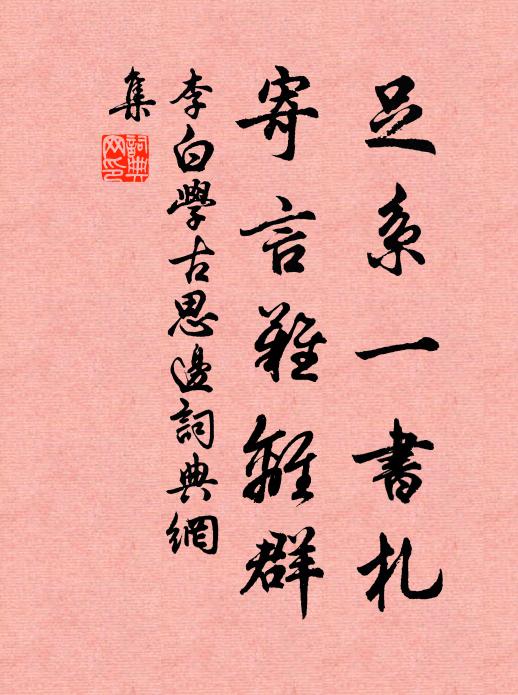 足系一書札
寄言難離群
李白學古思邊詞典網
集
詞典
网印